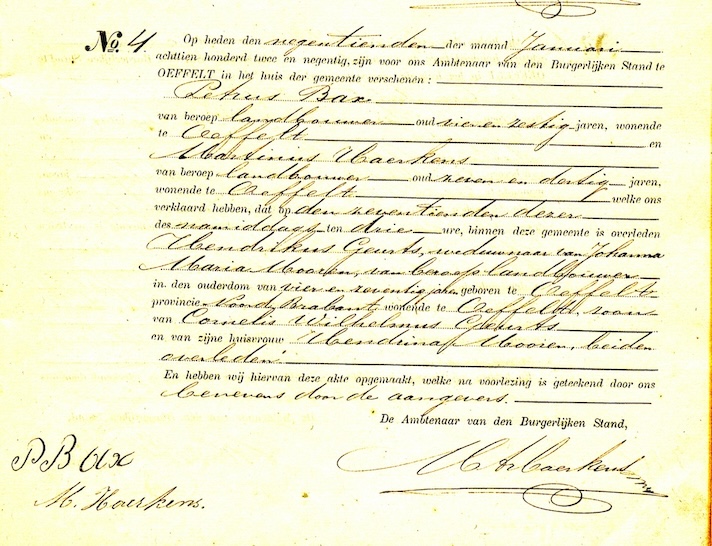 No. 4. Op heden den negentienden der maand Januari
achttien honderd twee en negentig, zijn voor ons Ambtenaar van den Burgerlijken Stand te
OEFFELT in het huis der gemeente verschenen:
Petrus Bax
van beroep landbouwer oud vier en zestig jaren, wonende
te Oeffelt en
Martinus Haerkens
van beroep landbouwer oud zeven en dertig jaren,
wonende te Oeffelt welke ons
verklaard hebben, dat op den zeventienden dezer
des namiddags ten drie ure, binnen deze gemeente is overleden
Hendrikus Geurts, weduwnaar van Johanna
Maria Mooren, van beroep landbouwer
in den ouderdom van vier en zeventig jaren geboren te Oeffelt
provincie Noord Brabant, wonende te Oeffelt, zoon
van Cornelis Wilhelmus Geurts
en van zijne huisvrouw Hendrina Mooren, beiden
overleden
En hebben wij hiervan deze akte opgemaakt, welke na voorlezing is geteekend door ons
benevens door de aangevers.
De Ambtenaar van den Burgerlijken Stand,
P Bax
M. Haerkens.